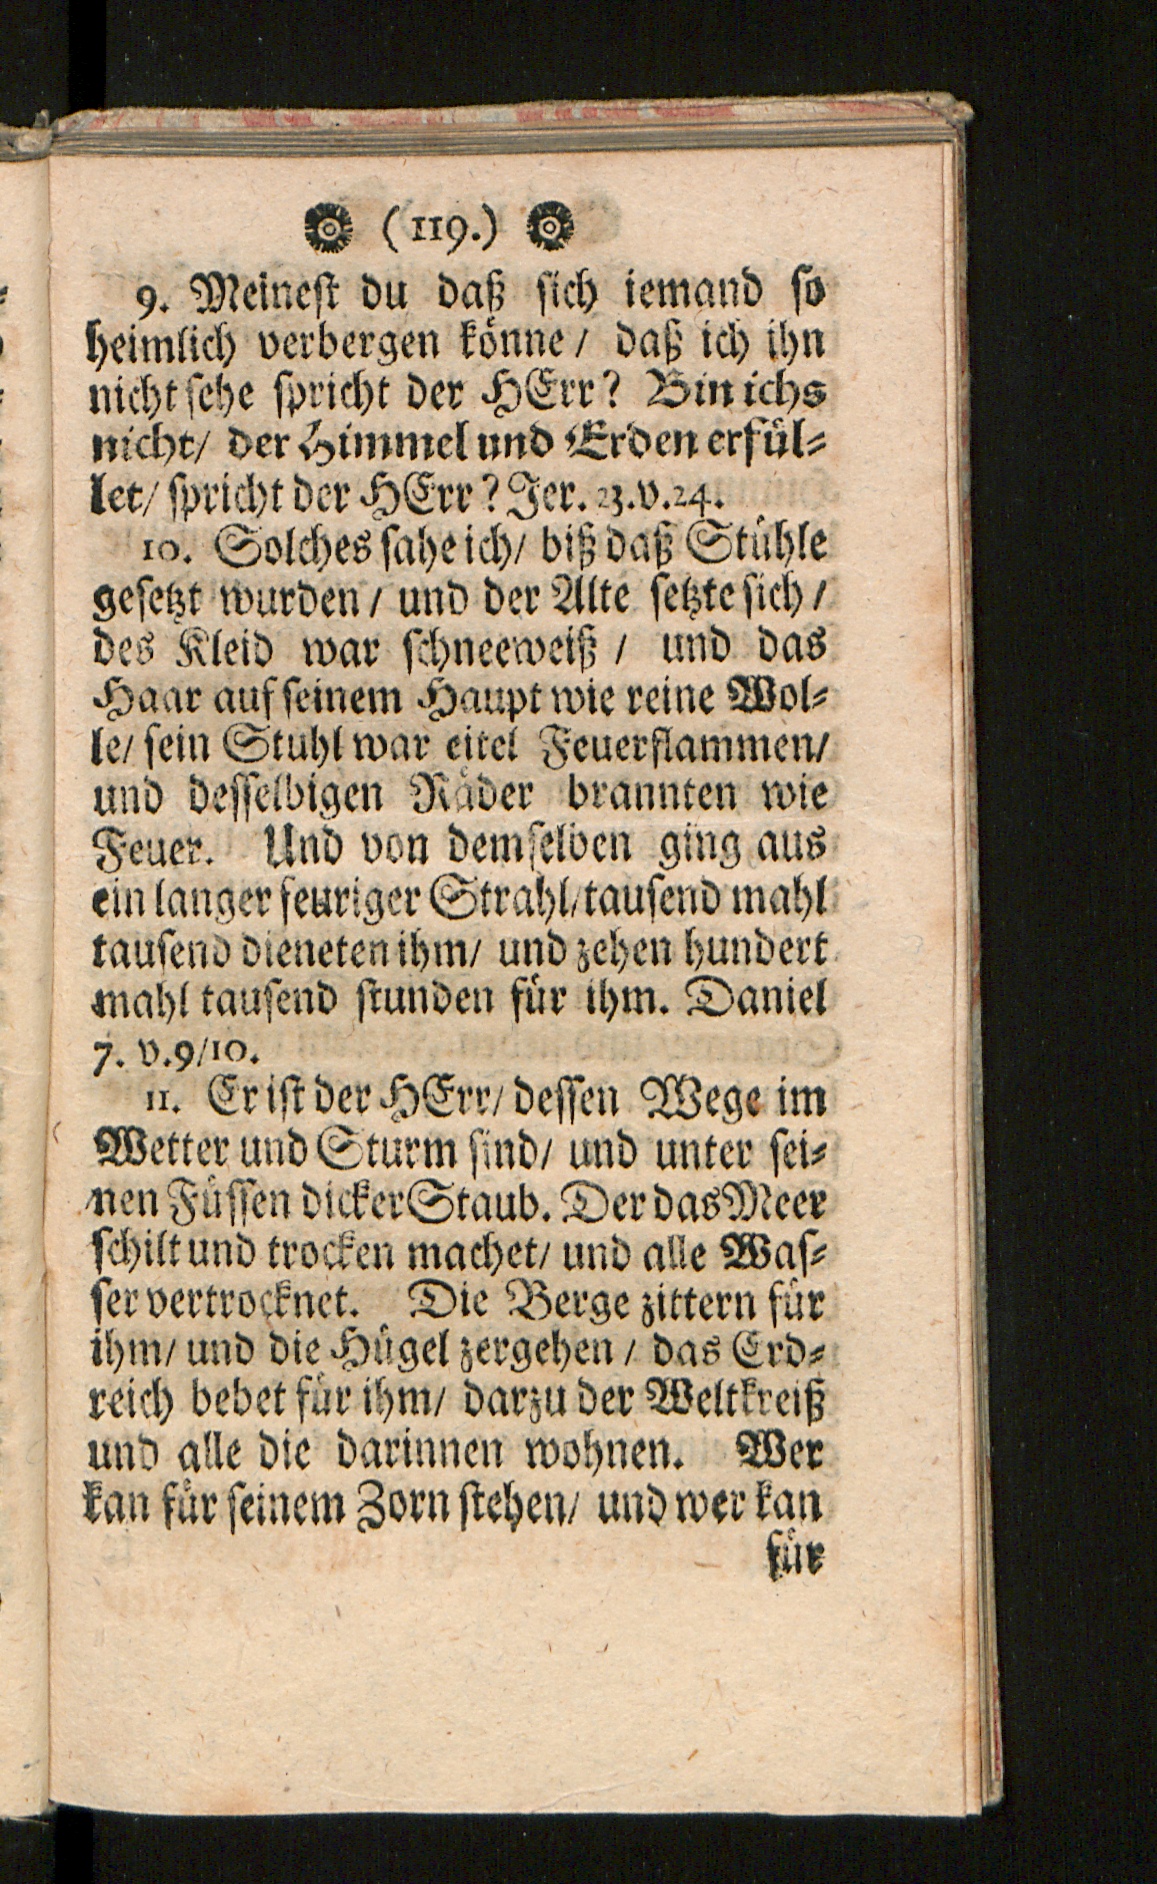 (119.)
9. Meinest du daß sich iemand so
heimlich verbergen könne / daß ich ihn
nicht sehe spricht der HErr? Bin ichs
nicht / der Himmel und Erden erfül-
let / spricht der HErr? Jer. 23. v. 24.
10. Solches sahe ich / biß daß Stühle
gesetzt wurden / und der Alte setzte sich /
des Kleid war schneeweiß / und das
Haar auf seinem Haupt wie reine Wol-
le / sein Stuhl war eitel Feuerflammen /
und desselbigen Räder brannten wie
Feuer. Und von demselben ging aus
ein langer feuriger Strahl / tausend mahl
tausend dieneten ihm / und zehen hundert
mahl tausend stunden für ihm. Daniel
7. v. 9/10.
11. Er ist der HErr / dessen Wege im
Wetter und Sturm sind / und unter sei-
nen Füssen dicker Staub. Der das Meer
schilt und trocken machet / und alle Was-
ser vertrocknet. Die Berge zittern für
ihm / und die Hügel zergehen / das Erd-
reich bebet für ihm / darzu der Weltkreiß
und alle die darinnen wohnen. Wer
kan für seinem Zorn stehen / und wer kan
für